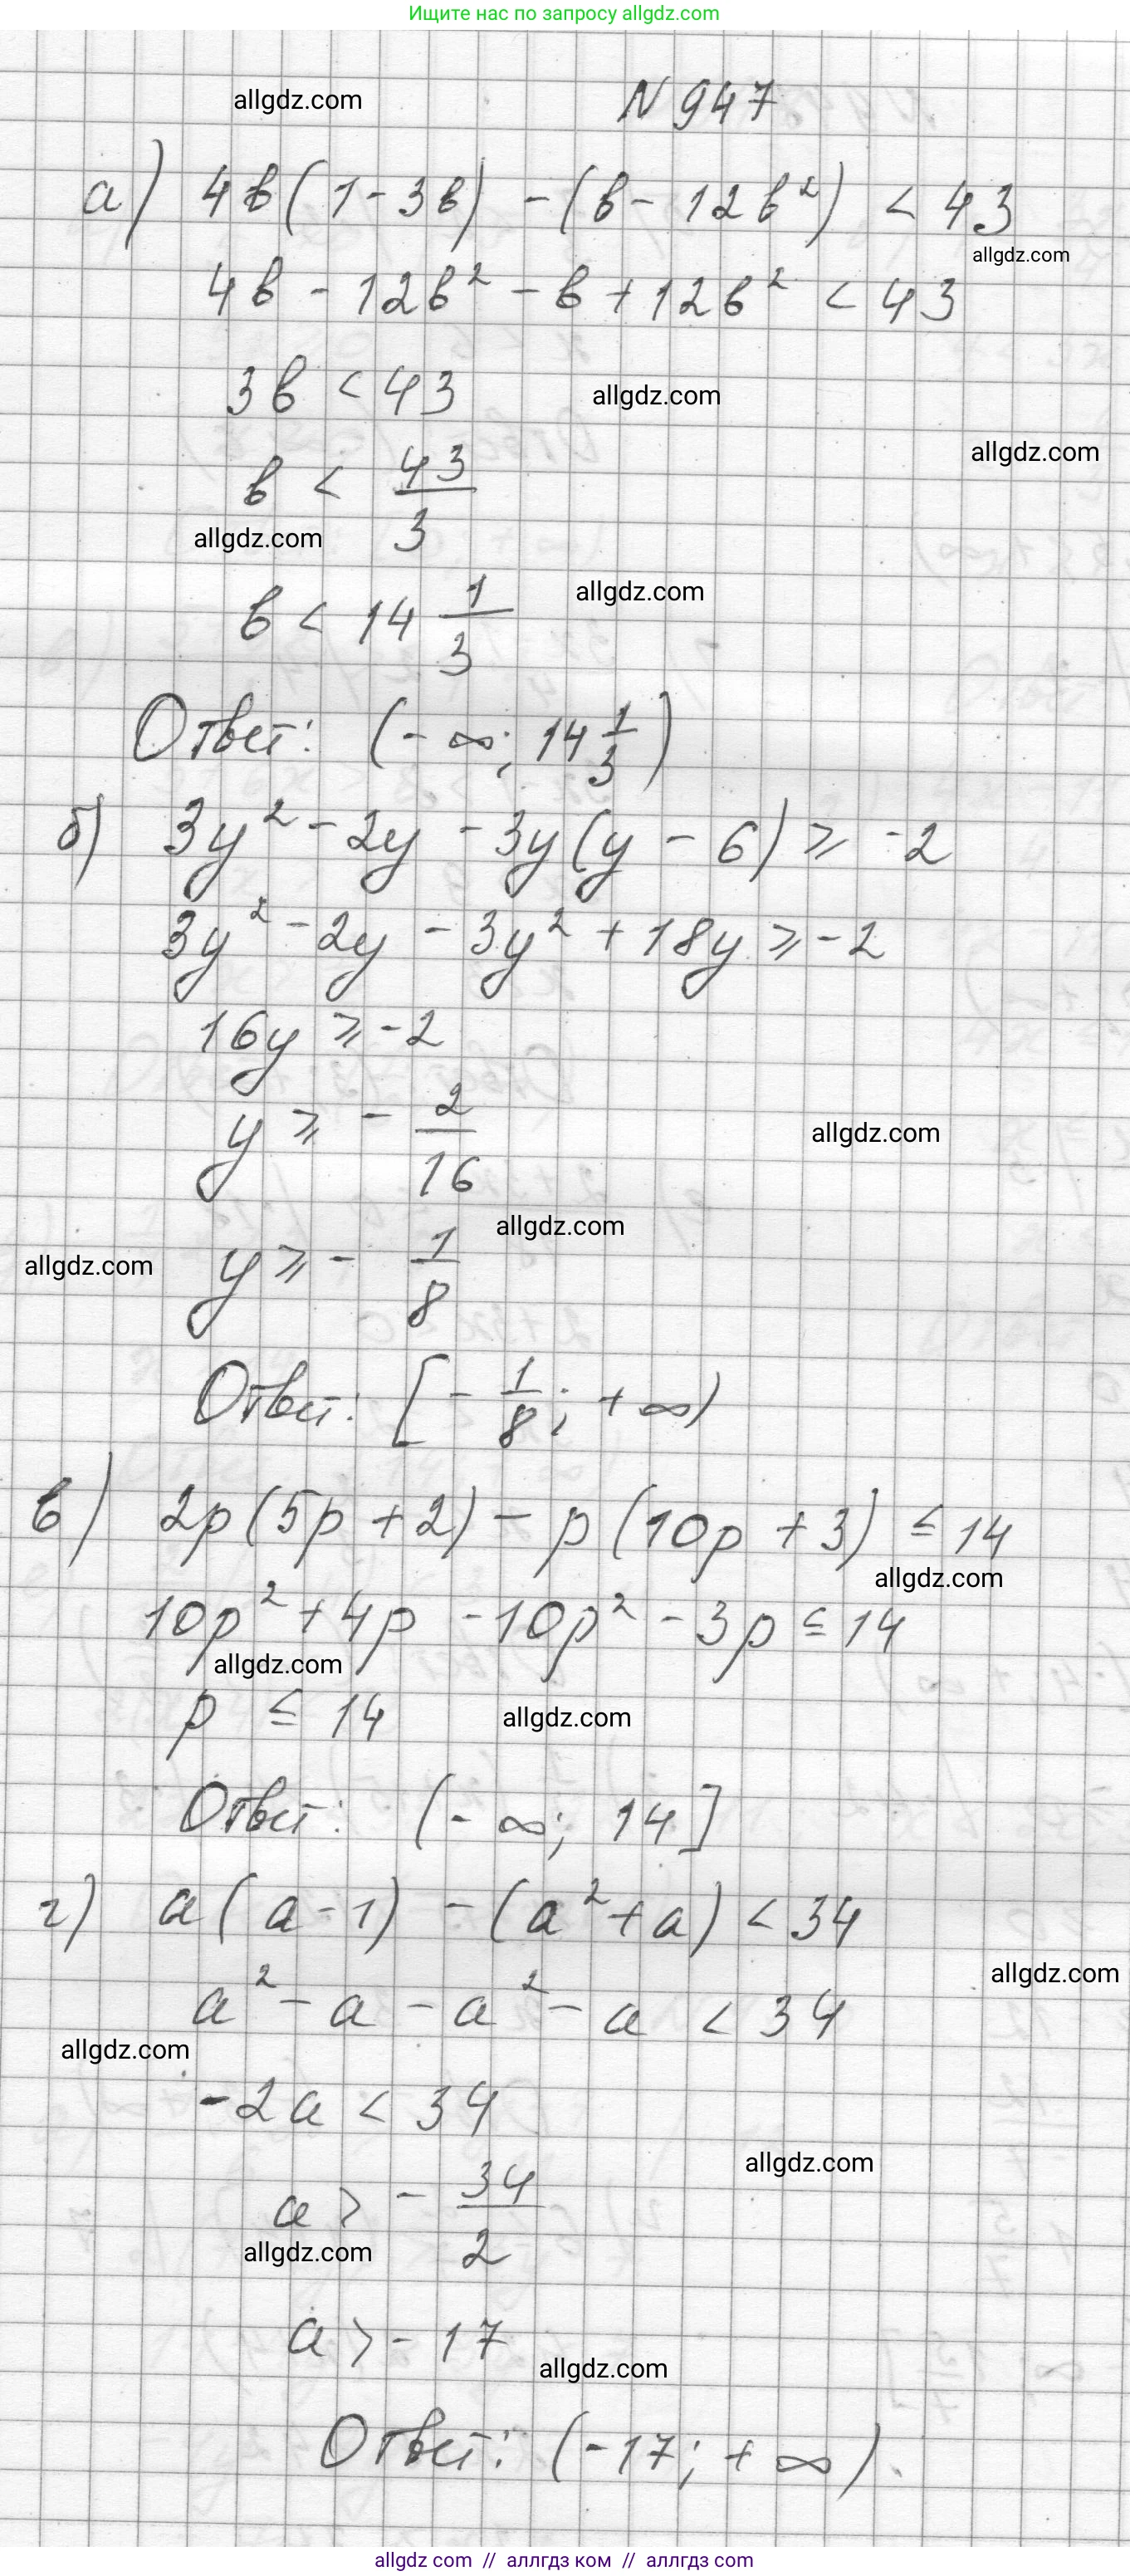 Ищите нас по запросу allgdz.com
allgdz.com
N 947
а) 4в(1-3в) -(в- 12в²) < 43
allgdz.com
4в - 12в² - в + 12в² < 43
3в < 43
allgdz.com
allgdz.com
в < 43/3
allgdz.com
allgdz.com
в < 14 1/3
Ответ: (- ∞; 14 1/3)
б) 3y² - 2y - 3y(y - 6) ⩾ -2
3y² - 2y - 3y² + 18y ⩾ -2
16y ⩾ -2
y ⩾ - 2/16
allgdz.com
allgdz.com
allgdz.com
y ⩾ - 1/8
Ответ: [- 1/8; + ∞)
в) 2p(5p + 2) - p(10p + 3) ≤ 14
allgdz.com
10p² + 4p - 10p² - 3p ≤ 14
allgdz.com
p ≤ 14
allgdz.com
Ответ: (- ∞; 14]
г) a(a-1) - (a² + a) < 34
allgdz.com
a² - a - a² - a < 34
allgdz.com
-2a < 34
allgdz.com
a > - 34/2
allgdz.com
a > - 17
allgdz.com
Ответ: (-17; + ∞).
allgdz com // аллгдз ком // аллгдз com